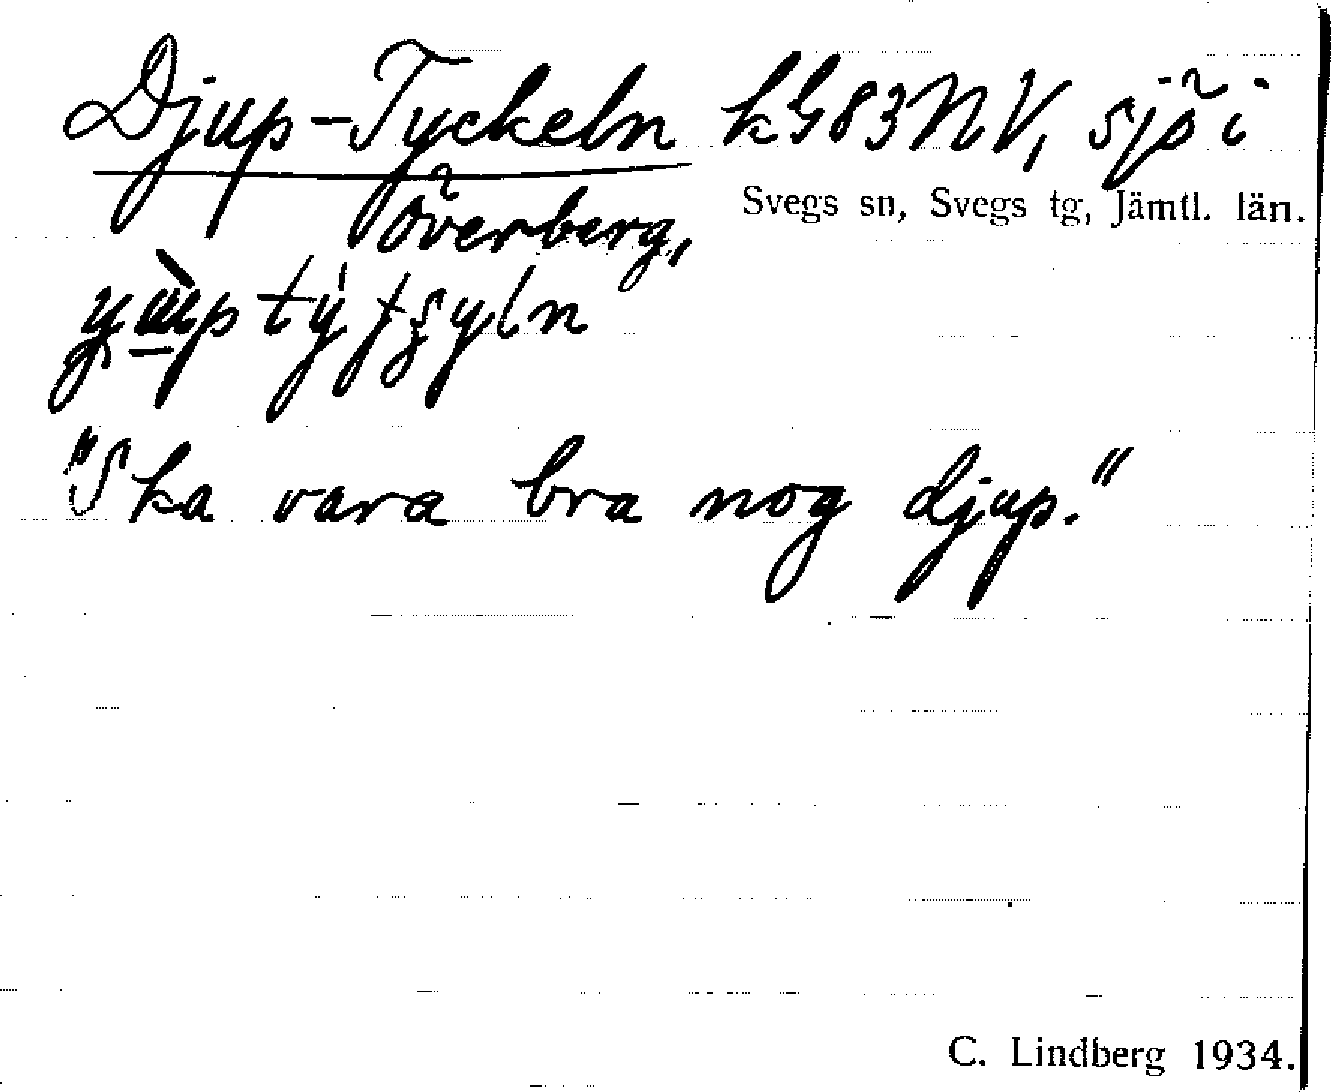 Djup-Tyckeln kG83NV, sjö i
Överberg,
Svegs sn, Svegs tg, Jämtl. län.
"Ska vara bra nog djup."
C. Lindberg 1934.